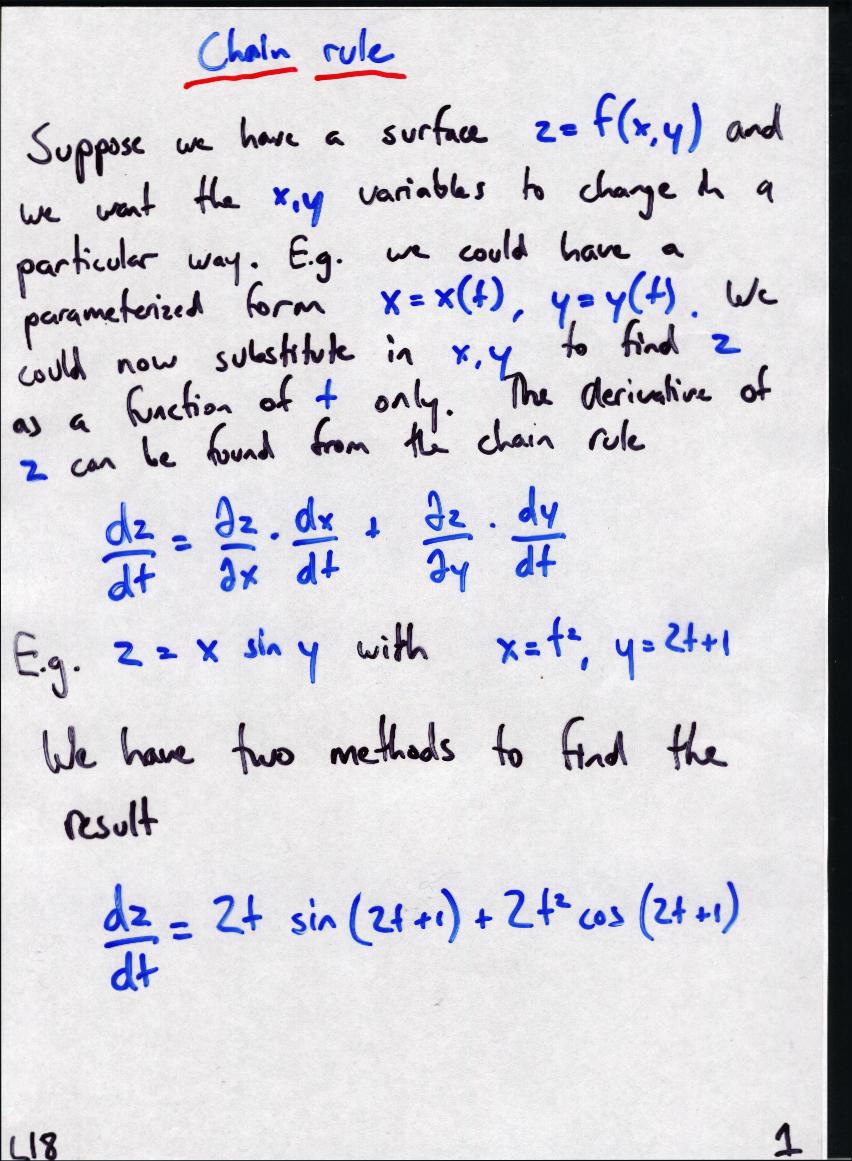 Chain rule
Suppose we have a surface z = f(x,y) and
we want the x,y variables to change in a
particular way. E.g. we could have a
parameterized form x = x(t), y = y(t). We
could now substitute in x,y to find z
as a function of t only. The derivative of
z can be found from the chain rule
dz/dt = ∂z/∂x · dx/dt + ∂z/∂y · dy/dt
E.g. z = x sin y with x = t², y = 2t+1
We have two methods to find the
result
dz/dt = 2t sin (2t+1) + 2t² cos (2t+1)
L18 1